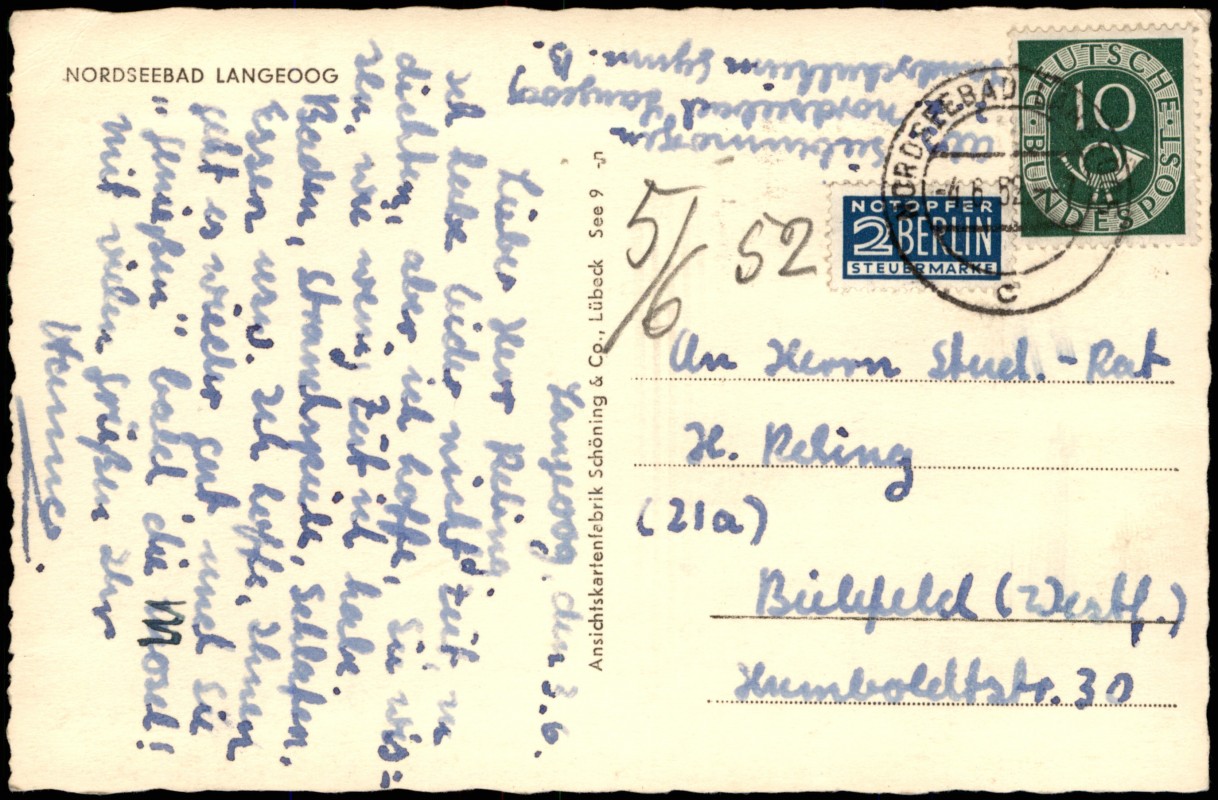 NORDSEEBAD LANGEOOG
Langeoog, den 3.6.
Lieber Herr Reling
Ich habe leider nicht Zeit zu
dichten, aber ich hoffe, Sie wis=
sen, wie wenig Zeit ich habe
Baden, Strandspiele, Schlafen,
Essen usw. Ich hoffe, Ihnen
geht es wieder gut und Sie
"genießen" bald die Mosel!
Mit vielen Grüßen Ihr
Hennes
Ansichtskartenfabrik Schöning & Co., Lübeck See 9 -n
Nordseebad Langeoog
DEUTSCHE BUNDESPOST
10
NORDSEEBAD
-4.6.52
c
NOTOPFER
2 BERLIN
STEUERMARKE
5/6 52
An Herrn Stud.-Rat
H. Reling
(21a)
Bielefeld (Westf.)
Humboldtstr. 30